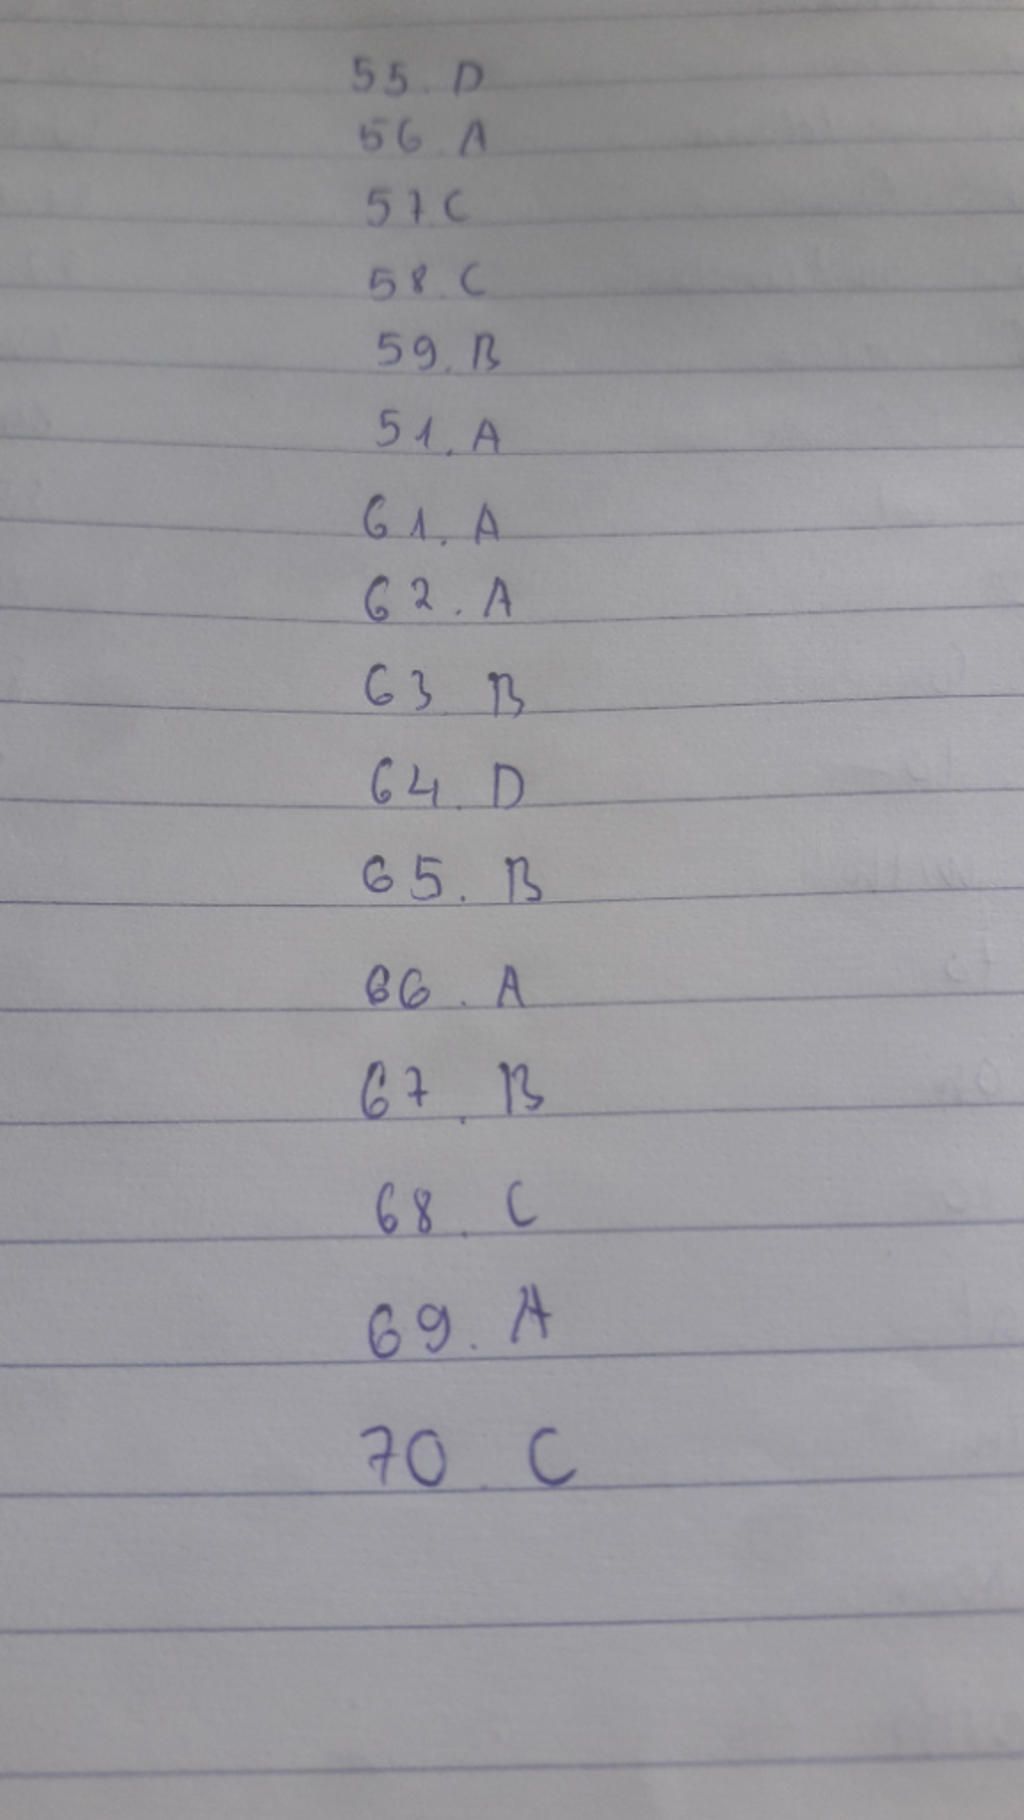 55. D
56. A
57. C
58. C
59. B
51. A
61. A
62. A
63 B
64. D
65. B
66. A
67. B
68. C
69. A
70. C